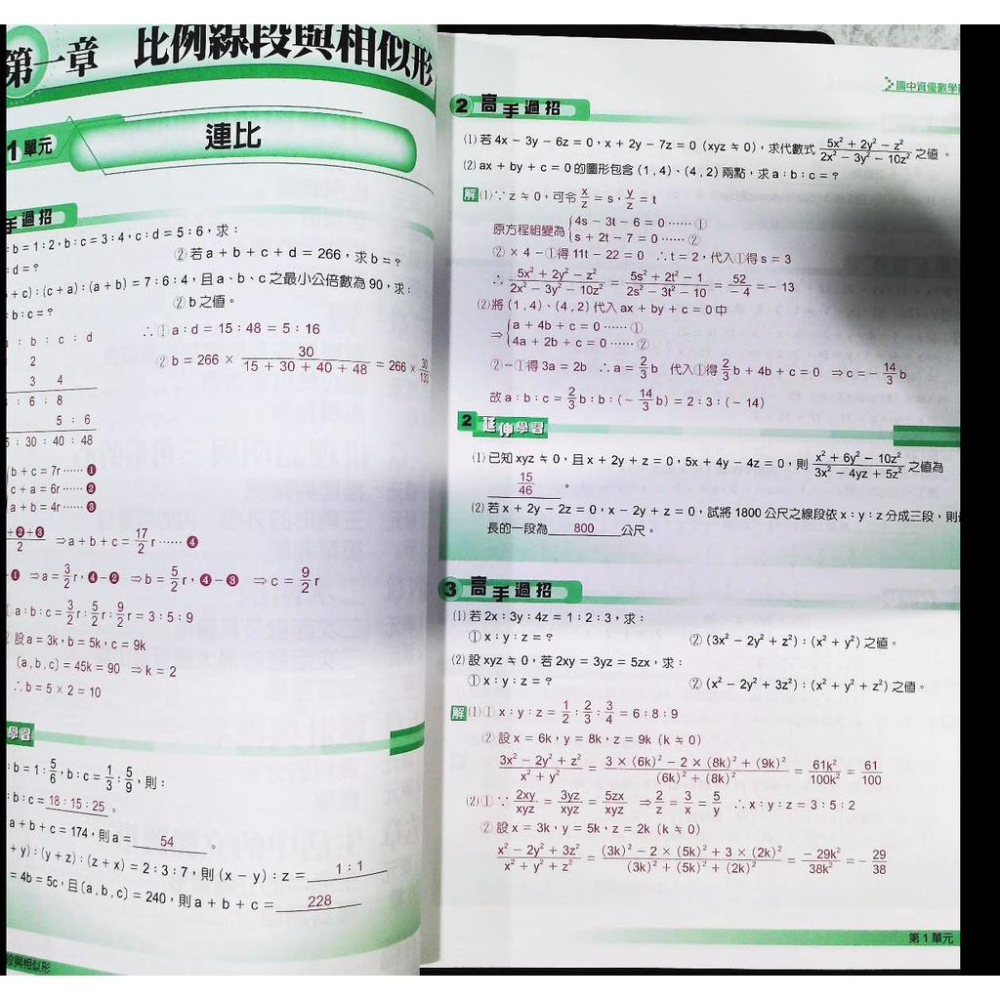 第一章 比例線段與相似形
1 單元 連比
手過招
:b = 1:2, b:c = 3:4, c:d = 5:6,求:
:d = ?
②若 a + b + c + d = 266,求 b = ?
+ c):(c + a):(a + b) = 7:6:4,且 a、b、c 之最小公倍數為 90,求:
:b:c = ?
②b 之值。
: b : c : d
2
3 4
: 6 : 8
5 : 6
5 : 30 : 40 : 48
∴ ① a:d = 15:48 = 5:16
② b = 266 × 30/(15 + 30 + 40 + 48) = 266 × 30/133
b + c = 7r …… ❶
c + a = 6r …… ❷
a + b = 4r …… ❸
+❷+❸/2 ⇒ a + b + c = 17/2 r …… ❹
-❶ ⇒ a = 3/2 r, ❹-❷ ⇒ b = 5/2 r, ❹-❸ ⇒ c = 9/2 r
a:b:c = 3/2 r:5/2 r:9/2 r = 3:5:9
設 a = 3k, b = 5k, c = 9k
[a, b, c] = 45k = 90 ⇒ k = 2
∴ b = 5 × 2 = 10
學習
:b = 1:5/6, b:c = 1/3:5/9,則:
:b:c = 18:15:25 。
a + b + c = 174,則 a = 54 。
+ y):(y + z):(z + x) = 2:3:7,則 (x - y):z = 1:1
= 4b = 5c,且 [a, b, c] = 240,則 a + b + c = 228
段與相似形
國中資優數學
2 高手過招
(1) 若 4x - 3y - 6z = 0, x + 2y - 7z = 0 (xyz ≠ 0),求代數式 (5x² + 2y² - z²)/(2x² - 3y² - 10z²) 之值。
(2) ax + by + c = 0 的圖形包含 (1, 4)、(4, 2) 兩點,求 a:b:c = ?
解 (1) ∵ z ≠ 0,可令 x/z = s, y/z = t
原方程組變為 { 4s - 3t - 6 = 0 …… ①
s + 2t - 7 = 0 …… ②
② × 4 - ①得 11t - 22 = 0 ∴ t = 2,代入①得 s = 3
∴ (5x² + 2y² - z²)/(2x² - 3y² - 10z²) = (5s² + 2t² - 1)/(2s² - 3t² - 10) = 52/-4 = - 13
(2) 將 (1, 4)、(4, 2) 代入 ax + by + c = 0 中
⇒ { a + 4b + c = 0 …… ①
4a + 2b + c = 0 …… ②
②-①得 3a = 2b ∴ a = 2/3 b 代入①得 2/3 b + 4b + c = 0 ⇒ c = - 14/3 b
故 a:b:c = 2/3 b:b:(- 14/3 b) = 2:3:(- 14)
2 延伸學習
(1) 已知 xyz ≠ 0,且 x + 2y + z = 0, 5x + 4y - 4z = 0,則 (x² + 6y² - 10z²)/(3x² - 4yz + 5z²) 之值為
15/46 。
(2) 若 x + 2y - 2z = 0, x - 2y + z = 0,試將 1800 公尺之線段依 x:y:z 分成三段,則
長的一段為 800 公尺。
3 高手過招
(1) 若 2x:3y:4z = 1:2:3,求:
① x:y:z = ? ② (3x² - 2y² + z²):(x² + y²) 之值。
(2) 設 xyz ≠ 0,若 2xy = 3yz = 5zx,求:
① x:y:z = ? ② (x² - 2y² + 3z²):(x² + y² + z²) 之值。
解 (1) ① x:y:z = 1/2:2/3:3/4 = 6:8:9
② 設 x = 6k, y = 8k, z = 9k (k ≠ 0)
(3x² - 2y² + z²)/(x² + y²) = (3 × (6k)² - 2 × (8k)² + (9k)²)/((6k)² + (8k)²) = 61k²/100k² = 61/100
(2) ① ∵ 2xy/xyz = 3yz/xyz = 5zx/xyz ⇒ 2/z = 3/x = 5/y ∴ x:y:z = 3:5:2
② 設 x = 3k, y = 5k, z = 2k (k ≠ 0)
(x² - 2y² + 3z²)/(x² + y² + z²) = ((3k)² - 2 × (5k)² + 3 × (2k)²)/((3k)² + (5k)² + (2k)²) = - 29k²/38k² = - 29/38
第 1 單元